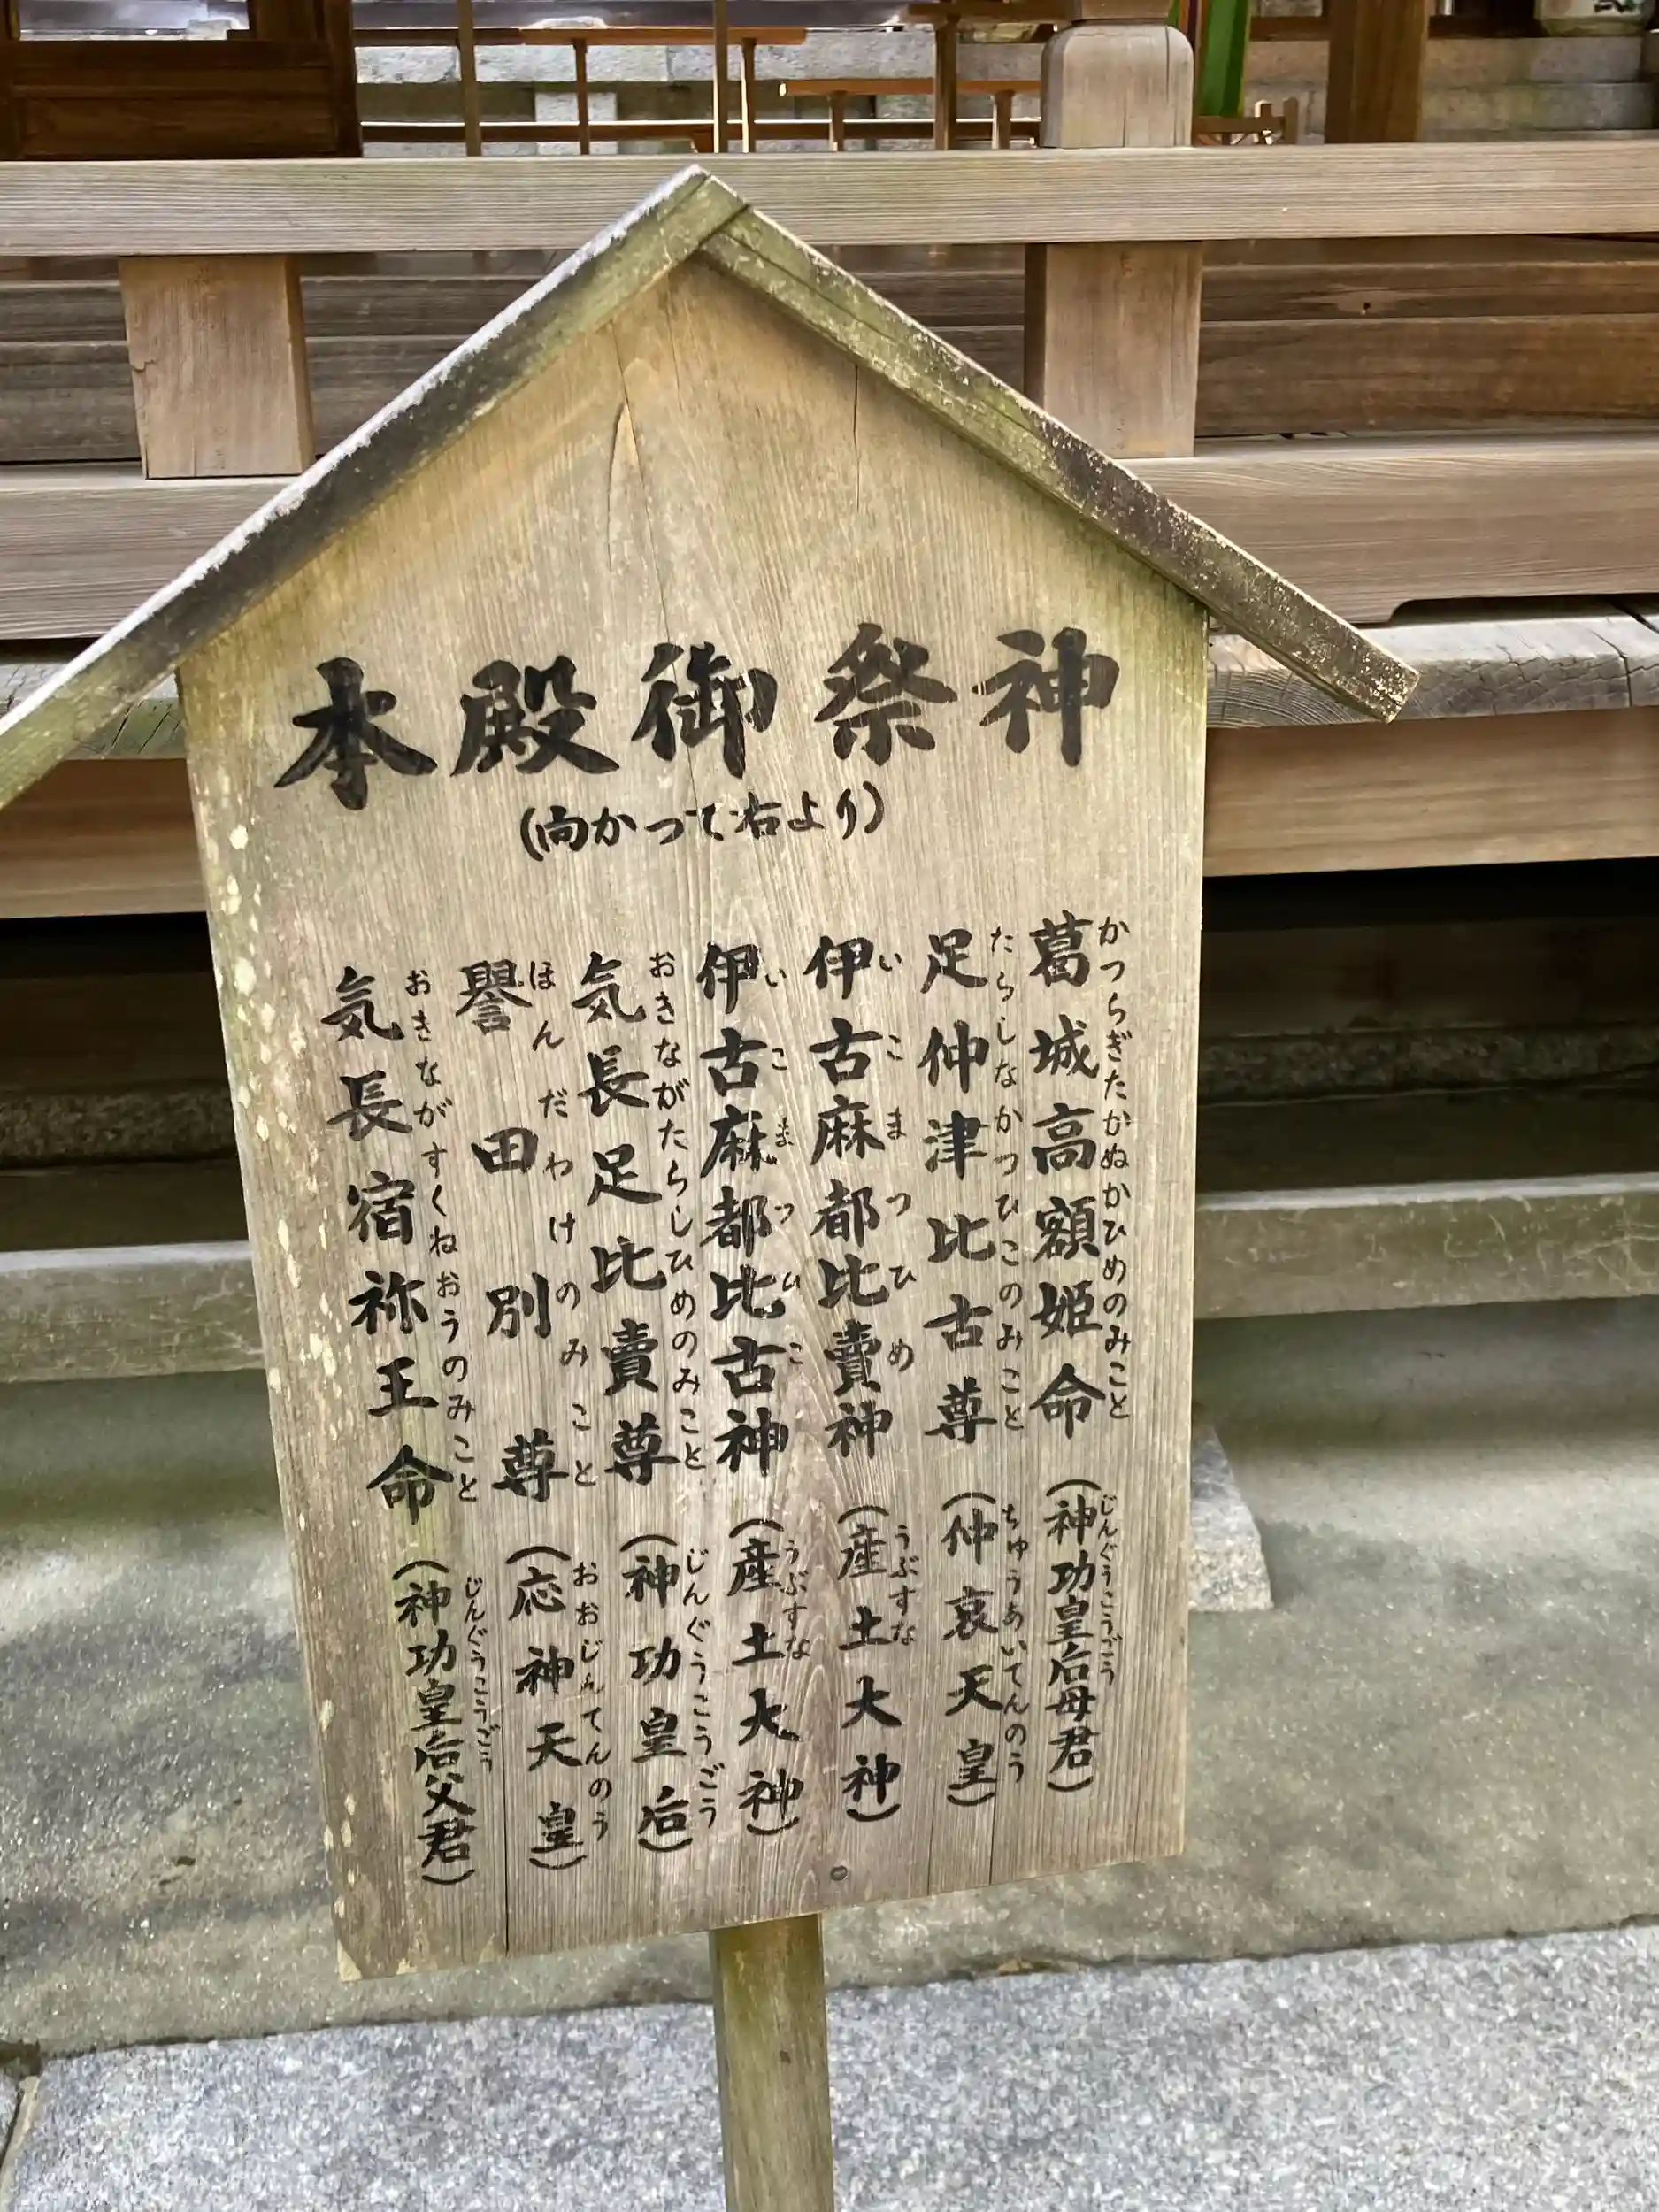 本殿御祭神
（向かって右より）
葛城高額姫命（神功皇后母君）
かつらぎたかぬかひめのみこと
じんぐうこうごう
足仲津比古尊（仲哀天皇）
たらしなかつひこのみこと
ちゅうあいてんのう
伊古麻都比賣神（産土大神）
いこまつひめ
うぶすな
伊古麻都比古神（産土大神）
いこまつひこ
うぶすな
気長足比賣尊（神功皇后）
おきながたらしひめのみこと
じんぐうこうごう
譽田別尊（応神天皇）
ほんだわけのみこと
おおじんてんのう
気長宿祢王命（神功皇后父君）
おきながすくねおうのみこと
じんぐうこうごう